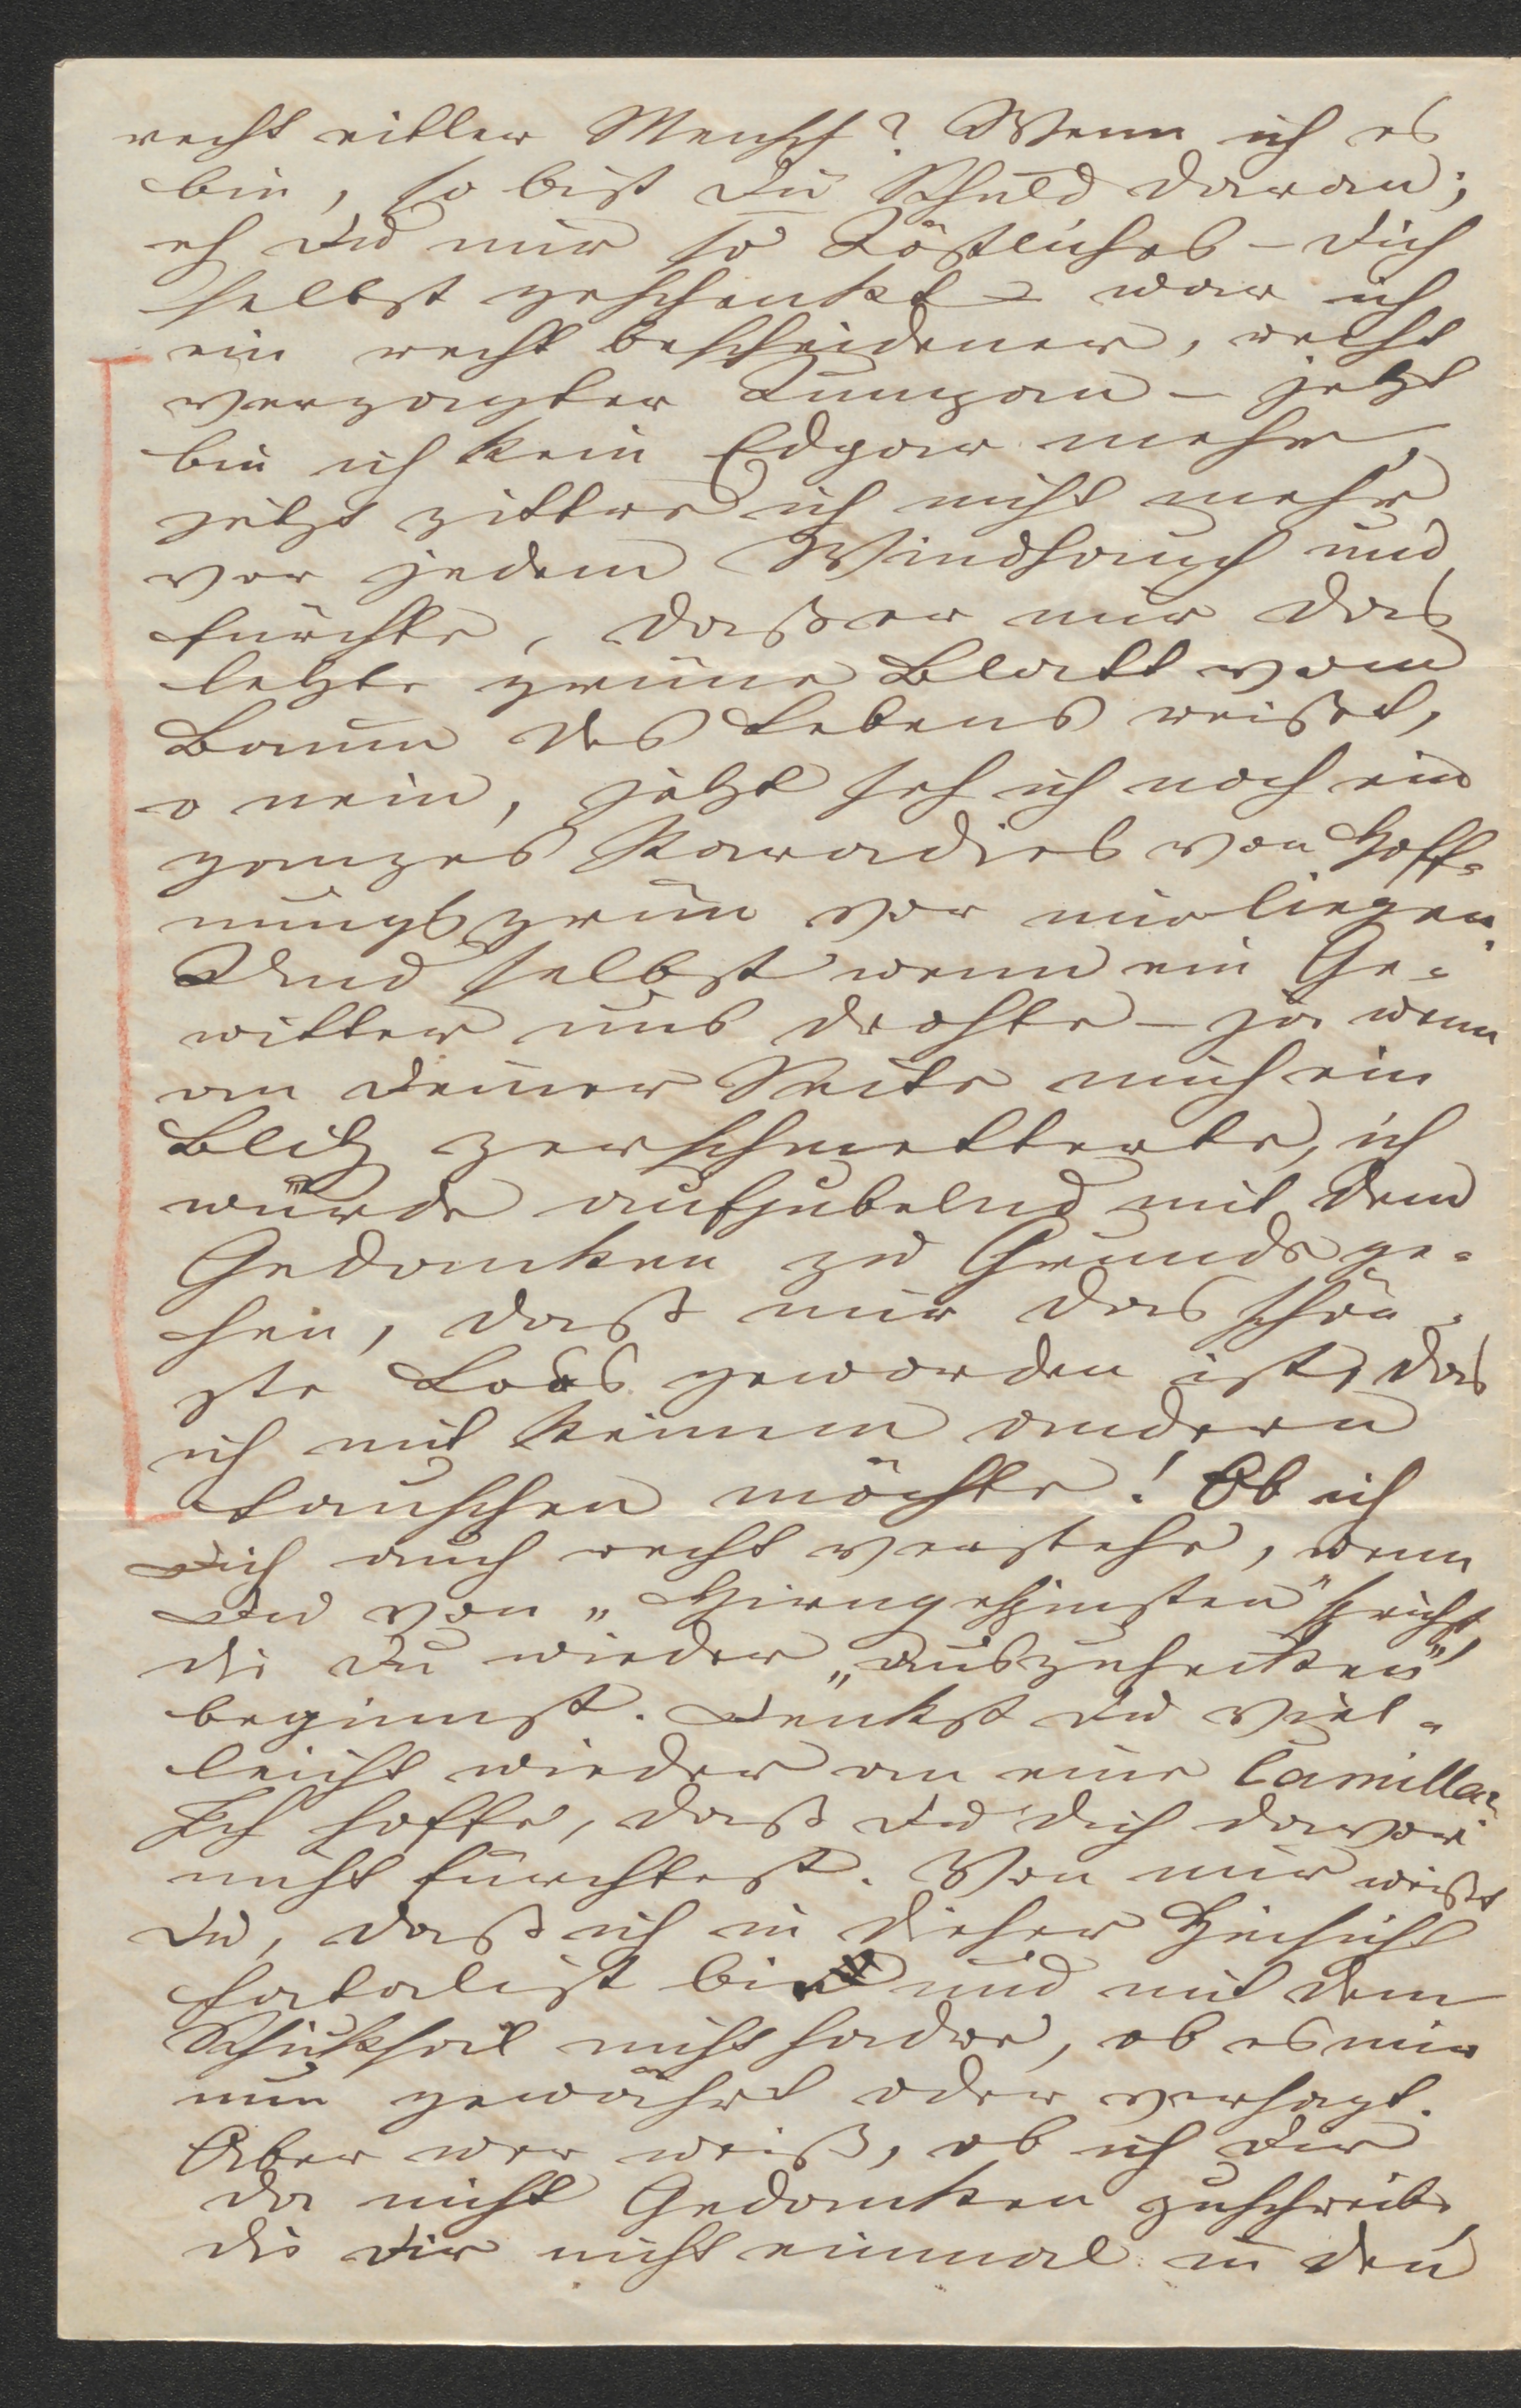 recht eitler Mensch? Wenn ich es
bin, so bist Du Schuld daran;
eh Du mir so Köstliches – Dich
selbst geschenkt – war ich
ein recht bescheidener, recht
verzagter Kumpan – jetzt
bin ich kein Edgar mehr,
jetzt zittre ich nicht mehr
vor jedem Windhauch und
fürchte, daß er mir das
letzte grüne Blatt vom
Baum des Lebens reißet,
o nein, jetzt seh ich noch ein
ganzes Paradies von Hoff-
nungsgrün vor mir liegen.
Und selbst wenn ein Ge-
witter uns drohte – ja wenn
an Deiner Seite mich ein
Blitz zerschmetterte, ich
würde aufjubelnd mit dem
Gedanken zu Grunde ge-
hen, daß mir das schön-
ste Loos geworden ist, das
ich mit keinem andern
tauschen möchte! Ob ich
Dich auch recht verstehe, wenn
Du von „Hirngespinsten" sprichst,
die Du wieder „auszuhecken"
beginnst. Denkst Du viel-
leicht wieder an eine Camilla?
Ich hoffe, daß Du Dich davor
nicht fürchtest. Von mir weißt
Du, daß ich in dieser Hinsicht
Fatalist bin und mit dem
Schicksal nicht hadre, ob es mir
nun gewährt oder versagt.
Aber wer weiß, ob ich Dir
da nicht Gedanken zuschreibe,
die Dir nicht einmal in den